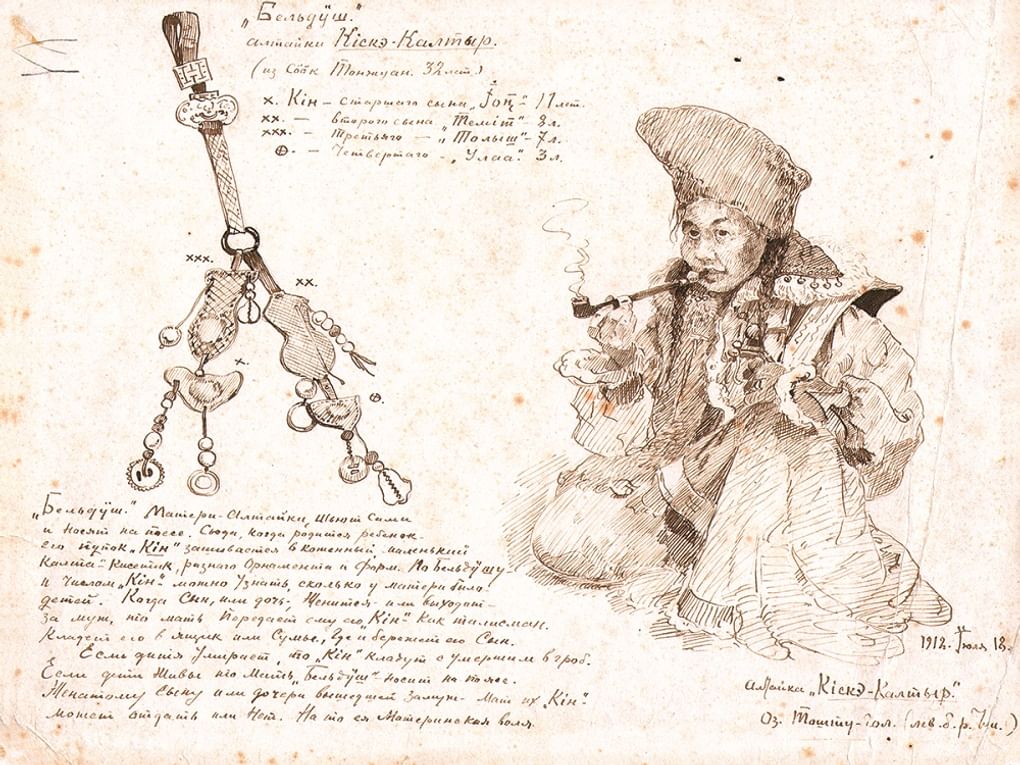 „Бельдӱш.“
алтайки Кіскэ-Калтыр.
(из Сöök Тонжуан. 32 лет.)
×. Кін – старшаго сына „Јоҥ“ – 11 лет.
××. – второго сына „Теміт“ – 8 л.
×××. – Третьяго – „Толыш“ – 7 л.
– Четвертаго – „Улаа“. 3 л.
×××.
××.
×.
„Бельдӱш.“ Матери-Алтайки, шьют сами
и носят на поясе. Сюда, когда родится ребенок-
его пупок „Кін“ зашивается в коженный, маленькій
Калта-Кисетик, разнаго Орнамента и форм. По Бельдӱшу
и числом „Кін“ можно Узнать, сколько у матери было
детей. Когда Сын, или дочь, Женится или выходит-
за муж, то мать Передает ему его „Кін“ как талисман.
Кладет его в ящик или Сумы, где и бережет его Сын.
Если дитя Умирает, то „Кін“ кладут с умершим в гроб.
Если дети Живы их Мать „Бельдӱш“ носит на поясе.
Женатому Сыну или дочери вышедшей Замуж- Мать их „Кін“
может отдать или Нет. На то ея Материнская воля.
1912. Іюля 12.
алтайка „Кіскэ-Калтыр.“
Оз. Тошту-гол. (лев. б. р. Чуи.)